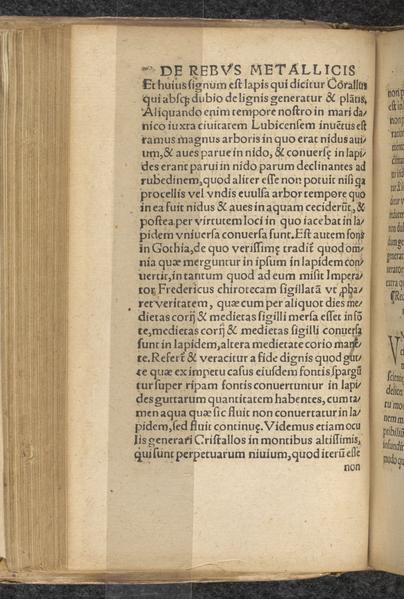 DE REBVS METALLICIS
Et huius signum est lapis qui dicitur Corallus
qui absq; dubio de lignis generatur & plãtis,
Aliquando enim tempore nostro in mari da/
nico iuxta ciuitatem Lubicensem inuẽtus est
ramus magnus arboris in quo erat nidus aui/
um, & aues paruę in nido, & conuersę in lapi/
des erant parui in nido parum declinantes ad
rubedinem, quod aliter esse non potuit nisi ꝗ
procellis vel vndis euulsa arbor tempore quo
in ea fuit nidus & aues in aquam ceciderũt, &
postea per virtutem loci in quo iacebat in la/
pidem vniuersa conuersa sunt. Est autem fons
in Gothia, de quo verissimę tradit̃ quod om/
nia quæ merguntur in ipsum in lapidem con/
uertit, in tantum quod ad eum misit Impera/
tor Fredericus chirotecam sigillatã vt ꝓba/
ret veritatem, quæ cum per aliquot dies me/
dietas corij & medietas sigilli mersa esset in fõ
te, medietas corij & medietas sigilli conuersa
sunt in lapidem, altera medietate corio manẽ
te. Refert̃ & veracitur a fide dignis quod gut/
tę quæ ex impetu casus eiusdem fontis spargũ
tur super ripam fontis conuertuntur in lapi/
des guttarum quantitatem habentes, cum ta/
men aqua quæ sic fluit non conuertatur in la/
pidem, sed fluit continuę. Videmus etiam ocu
lis generari Cristallos in montibus altissimis,
qui sunt perpetuarum niuium, quod iterũ esse
non